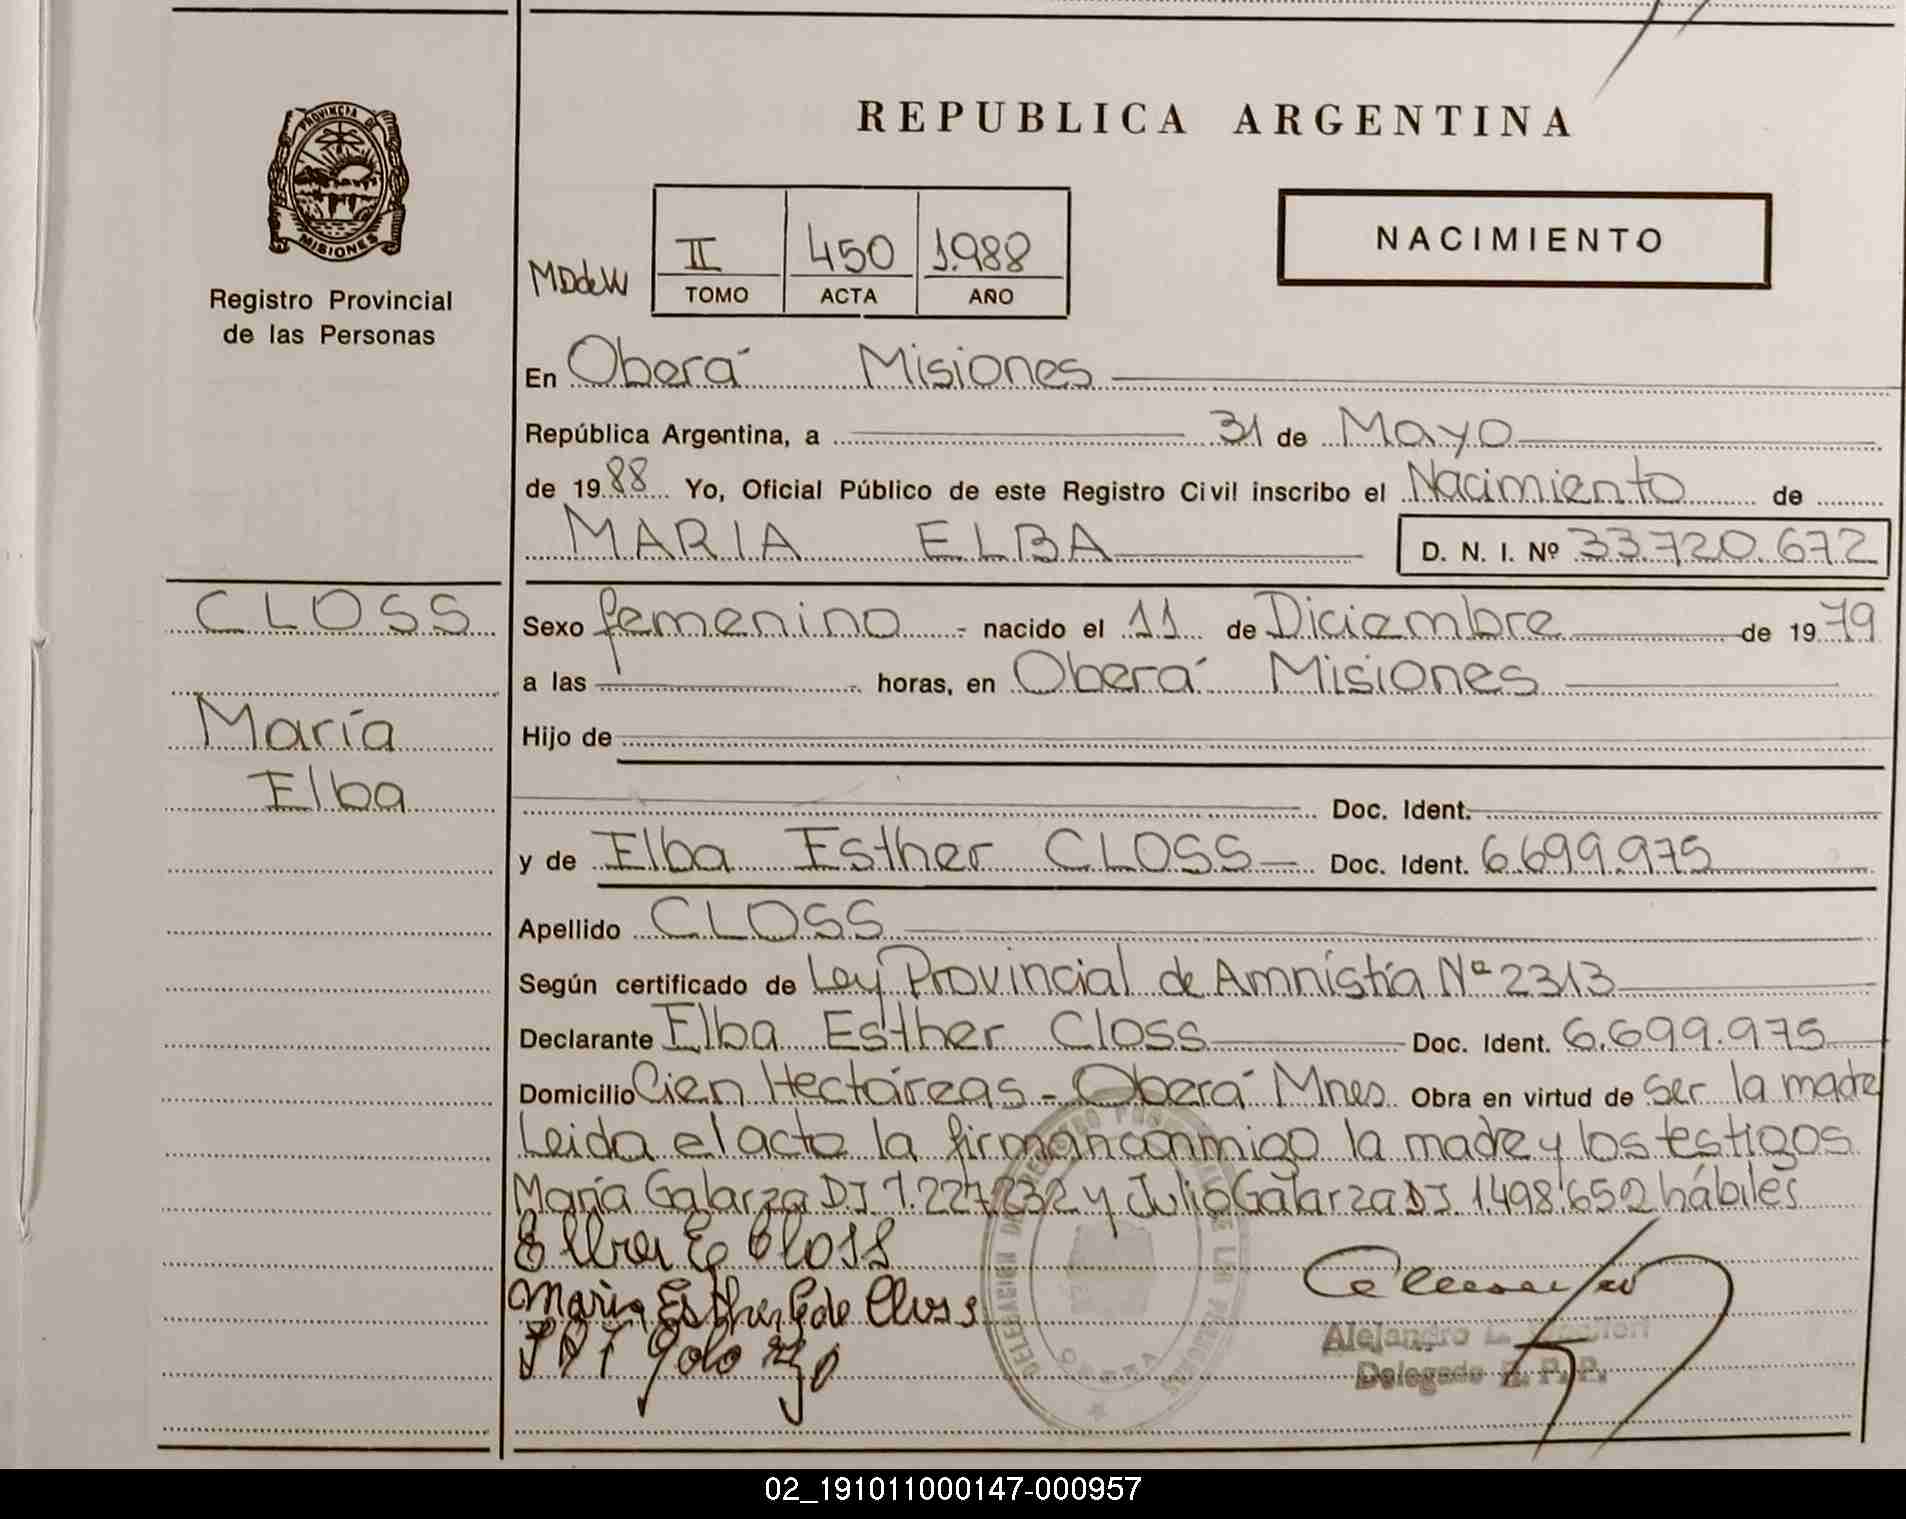 PROVINCIA DE
MISIONES
Registro Provincial
de las Personas
REPUBLICA ARGENTINA
NACIMIENTO
MDdeW
II 450 1.988
TOMO ACTA AÑO
En Oberá Misiones
República Argentina, a 31 de Mayo
de 1988 Yo, Oficial Público de este Registro Civil inscribo el Nacimiento de
MARIA ELBA D. N. I. Nº 33.720.672
CLOSS
María
Elba
Sexo femenino - nacido el 11 de Diciembre de 1979
a las horas, en Oberá Misiones
Hijo de
Doc. Ident.
y de Elba Esther CLOSS Doc. Ident. 6.699.975
Apellido CLOSS
Según certificado de Ley Provincial de Amnistía Nº 2313
Declarante Elba Esther Closs Doc. Ident. 6.699.975
Domicilio Cien Hectáreas - Oberá Mnes. Obra en virtud de ser la madre
Leida el acto la firman conmigo la madre y los testigos
María Galarza DJ. 1.227.232 y Julio Galarza DJ. 1.498.652 hábiles
Elba E Closs
Maria Esther G de Closs
Alejandro
Delegado R. P. P.
OBERA
02_191011000147-000957